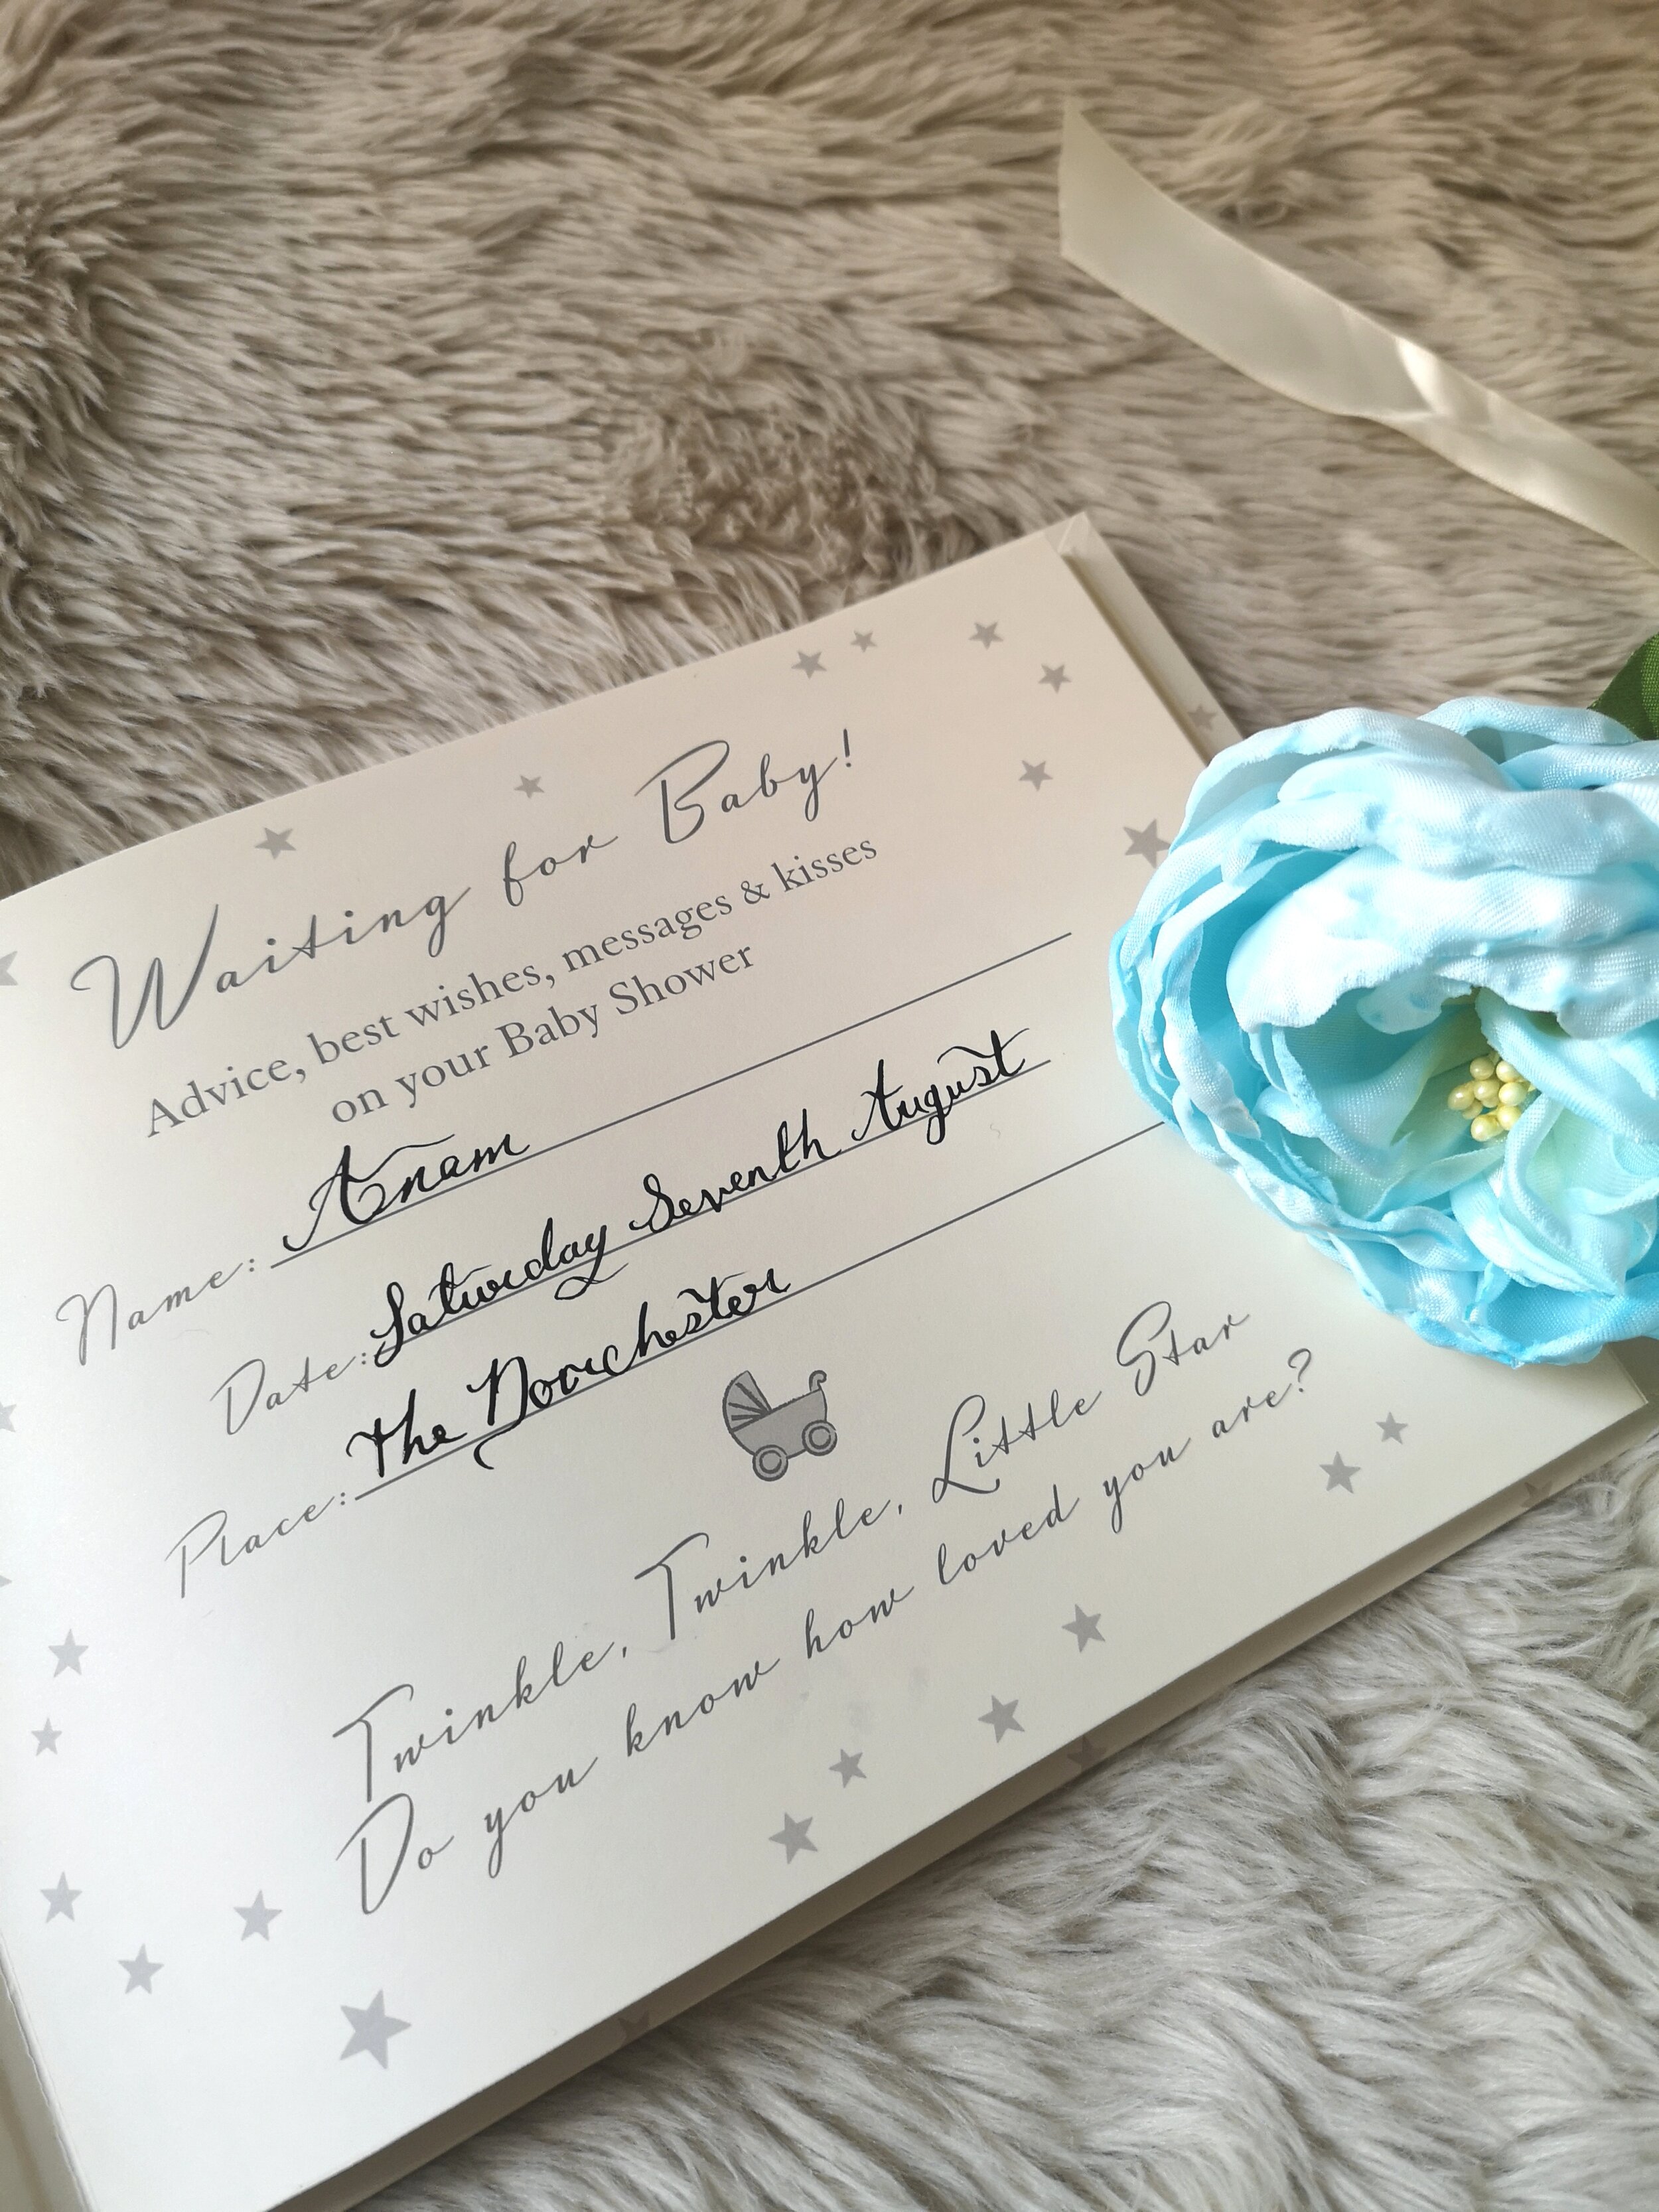 Waiting for Baby!
Advice, best wishes, messages & kisses
on your Baby Shower
Name: Anam
Date: Saturday Seventh August
Place: The Dorchester
Twinkle, Twinkle, Little Star
Do you know how loved you are?